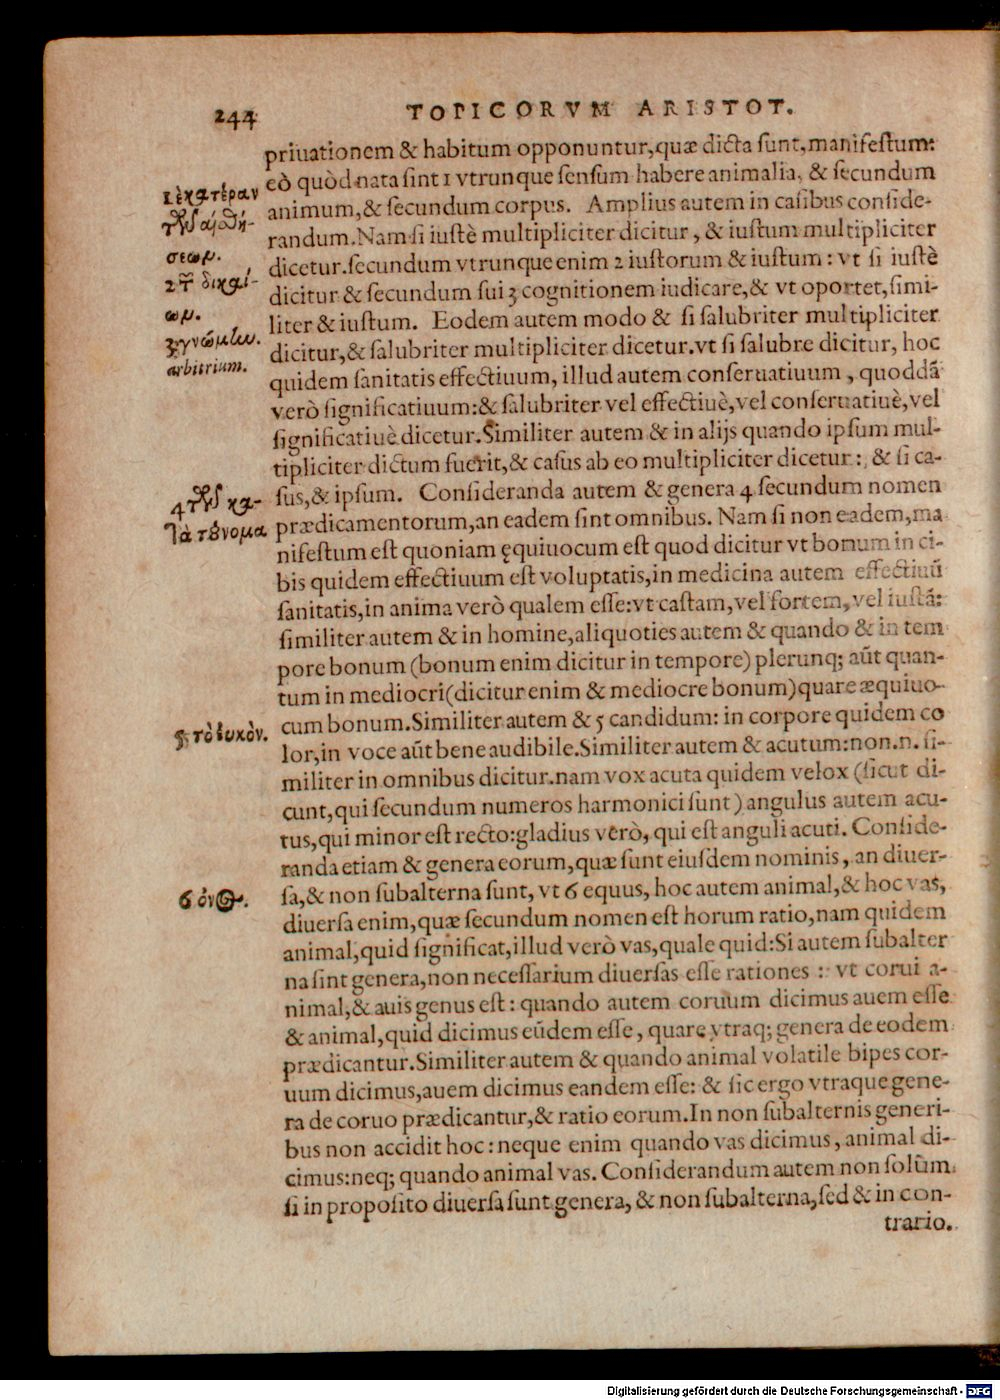 244 TOPICORVM ARISTOT.
priuationem & habitum opponuntur,quæ dicta ſunt,manifeſtum:
eò quòd nata ſint 1 vtrunque ſenſum habere animalia, & ſecundum
animum,& ſecundum corpus. Amplius autem in caſibus conſide-
randum.Nam ſi iuſtè multipliciter dicitur, & iuſtum multipliciter
dicetur.ſecundum vtrunque enim 2 iuſtorum & iuſtum: vt ſi iuſtè
dicitur & ſecundum ſui 3 cognitionem iudicare,& vt oportet,ſimi-
liter & iuſtum. Eodem autem modo & ſi ſalubriter multipliciter
dicitur,& ſalubriter multipliciter dicetur.vt ſi ſalubre dicitur, hoc
quidem ſanitatis effectiuum, illud autem conſeruatiuum, quoddã
verò ſignificatiuum:& ſalubriter vel effectiuè,vel conſeruatiuè,vel
ſignificatiuè dicetur.Similiter autem & in alijs quando ipſum mul-
tipliciter dictum fuerit,& caſus ab eo multipliciter dicetur:, & ſi ca-
ſus,& ipſum. Conſideranda autem & genera 4 ſecundum nomen
prædicamentorum,an eadem ſint omnibus. Nam ſi non eadem,ma
nifeſtum eſt quoniam ęquiuocum eſt quod dicitur vt bonum in ci-
bis quidem effectiuum eſt voluptatis,in medicina autem effectiuũ
ſanitatis,in anima verò qualem eſſe:vt caſtam,vel fortem,vel iuſtã:
ſimiliter autem & in homine,aliquoties autem & quando & in tem
pore bonum (bonum enim dicitur in tempore) plerunq; aũt quan-
tum in mediocri(dicitur enim & mediocre bonum)quare æquiuo-
cum bonum.Similiter autem & 5 candidum: in corpore quidem co
lor,in voce aũt bene audibile.Similiter autem & acutum:non.n. ſi-
militer in omnibus dicitur.nam vox acuta quidem velox (ſicut di-
cunt,qui ſecundum numeros harmonici ſunt) angulus autem acu-
tus,qui minor eſt recto:gladius verò, qui eſt anguli acuti. Conſide-
randa etiam & genera eorum,quæ ſunt eiuſdem nominis, an diuer-
ſa,& non ſubalterna ſunt, vt 6 equus, hoc autem animal,& hoc vas,
diuerſa enim,quæ ſecundum nomen eſt horum ratio,nam quidem
animal,quid ſignificat,illud verò vas,quale quid:Si autem ſubalter
na ſint genera,non neceſſarium diuerſas eſſe rationes: vt corui a-
nimal,& auis genus eſt: quando autem coruum dicimus auem eſſe
& animal,quid dicimus eũdem eſſe, quare vtraq; genera de eodem
prædicantur.Similiter autem & quando animal volatile bipes cor-
uum dicimus,auem dicimus eandem eſſe: & ſic ergo vtraque gene-
ra de coruo prædicantur,& ratio eorum.In non ſubalternis generi-
bus non accidit hoc: neque enim quando vas dicimus, animal di-
cimus:neq; quando animal vas. Conſiderandum autem non ſolùm
ſi in propoſito diuerſa ſunt genera, & non ſubalterna,ſed & in con-
trario.
1 ἑκατέραν
τῶν αἰσθή-
σεων.
2 τῶν δικαί-
ων.
3 γνώμην.
arbitrium.
4 τῶν κα-
τὰ τοὔνομα
5 τὸ λευκόν.
6 ὄνος.
Digitalisierung gefördert durch die Deutsche Forschungsgemeinschaft - DFG